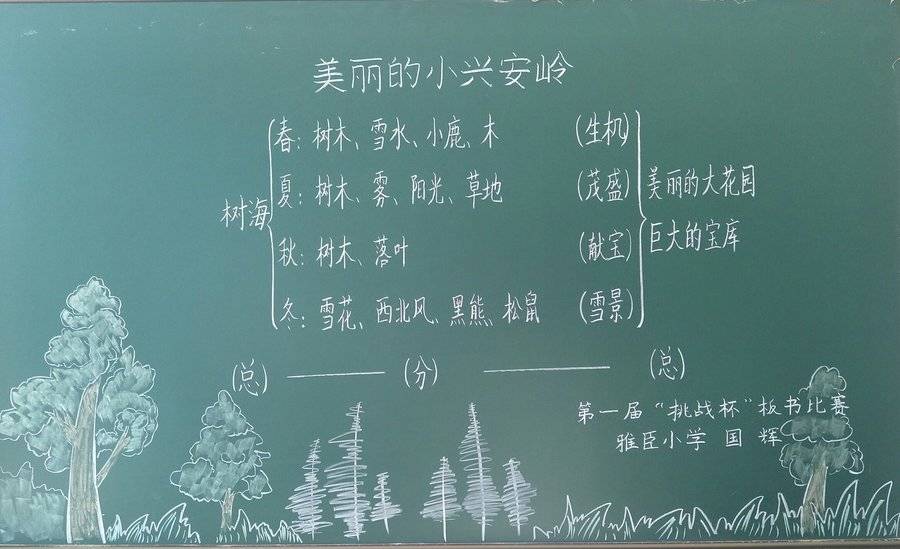 美丽的小兴安岭
春：树木、雪水、小鹿、木 （生机）
夏：树木、雾、阳光、草地 （茂盛） 美丽的大花园
树海
秋：树木、落叶 （献宝） 巨大的宝库
冬：雪花、西北风、黑熊、松鼠 （雪景）
（总）——（分）——（总）
第一届“挑战杯”板书比赛
雅臣小学 国辉